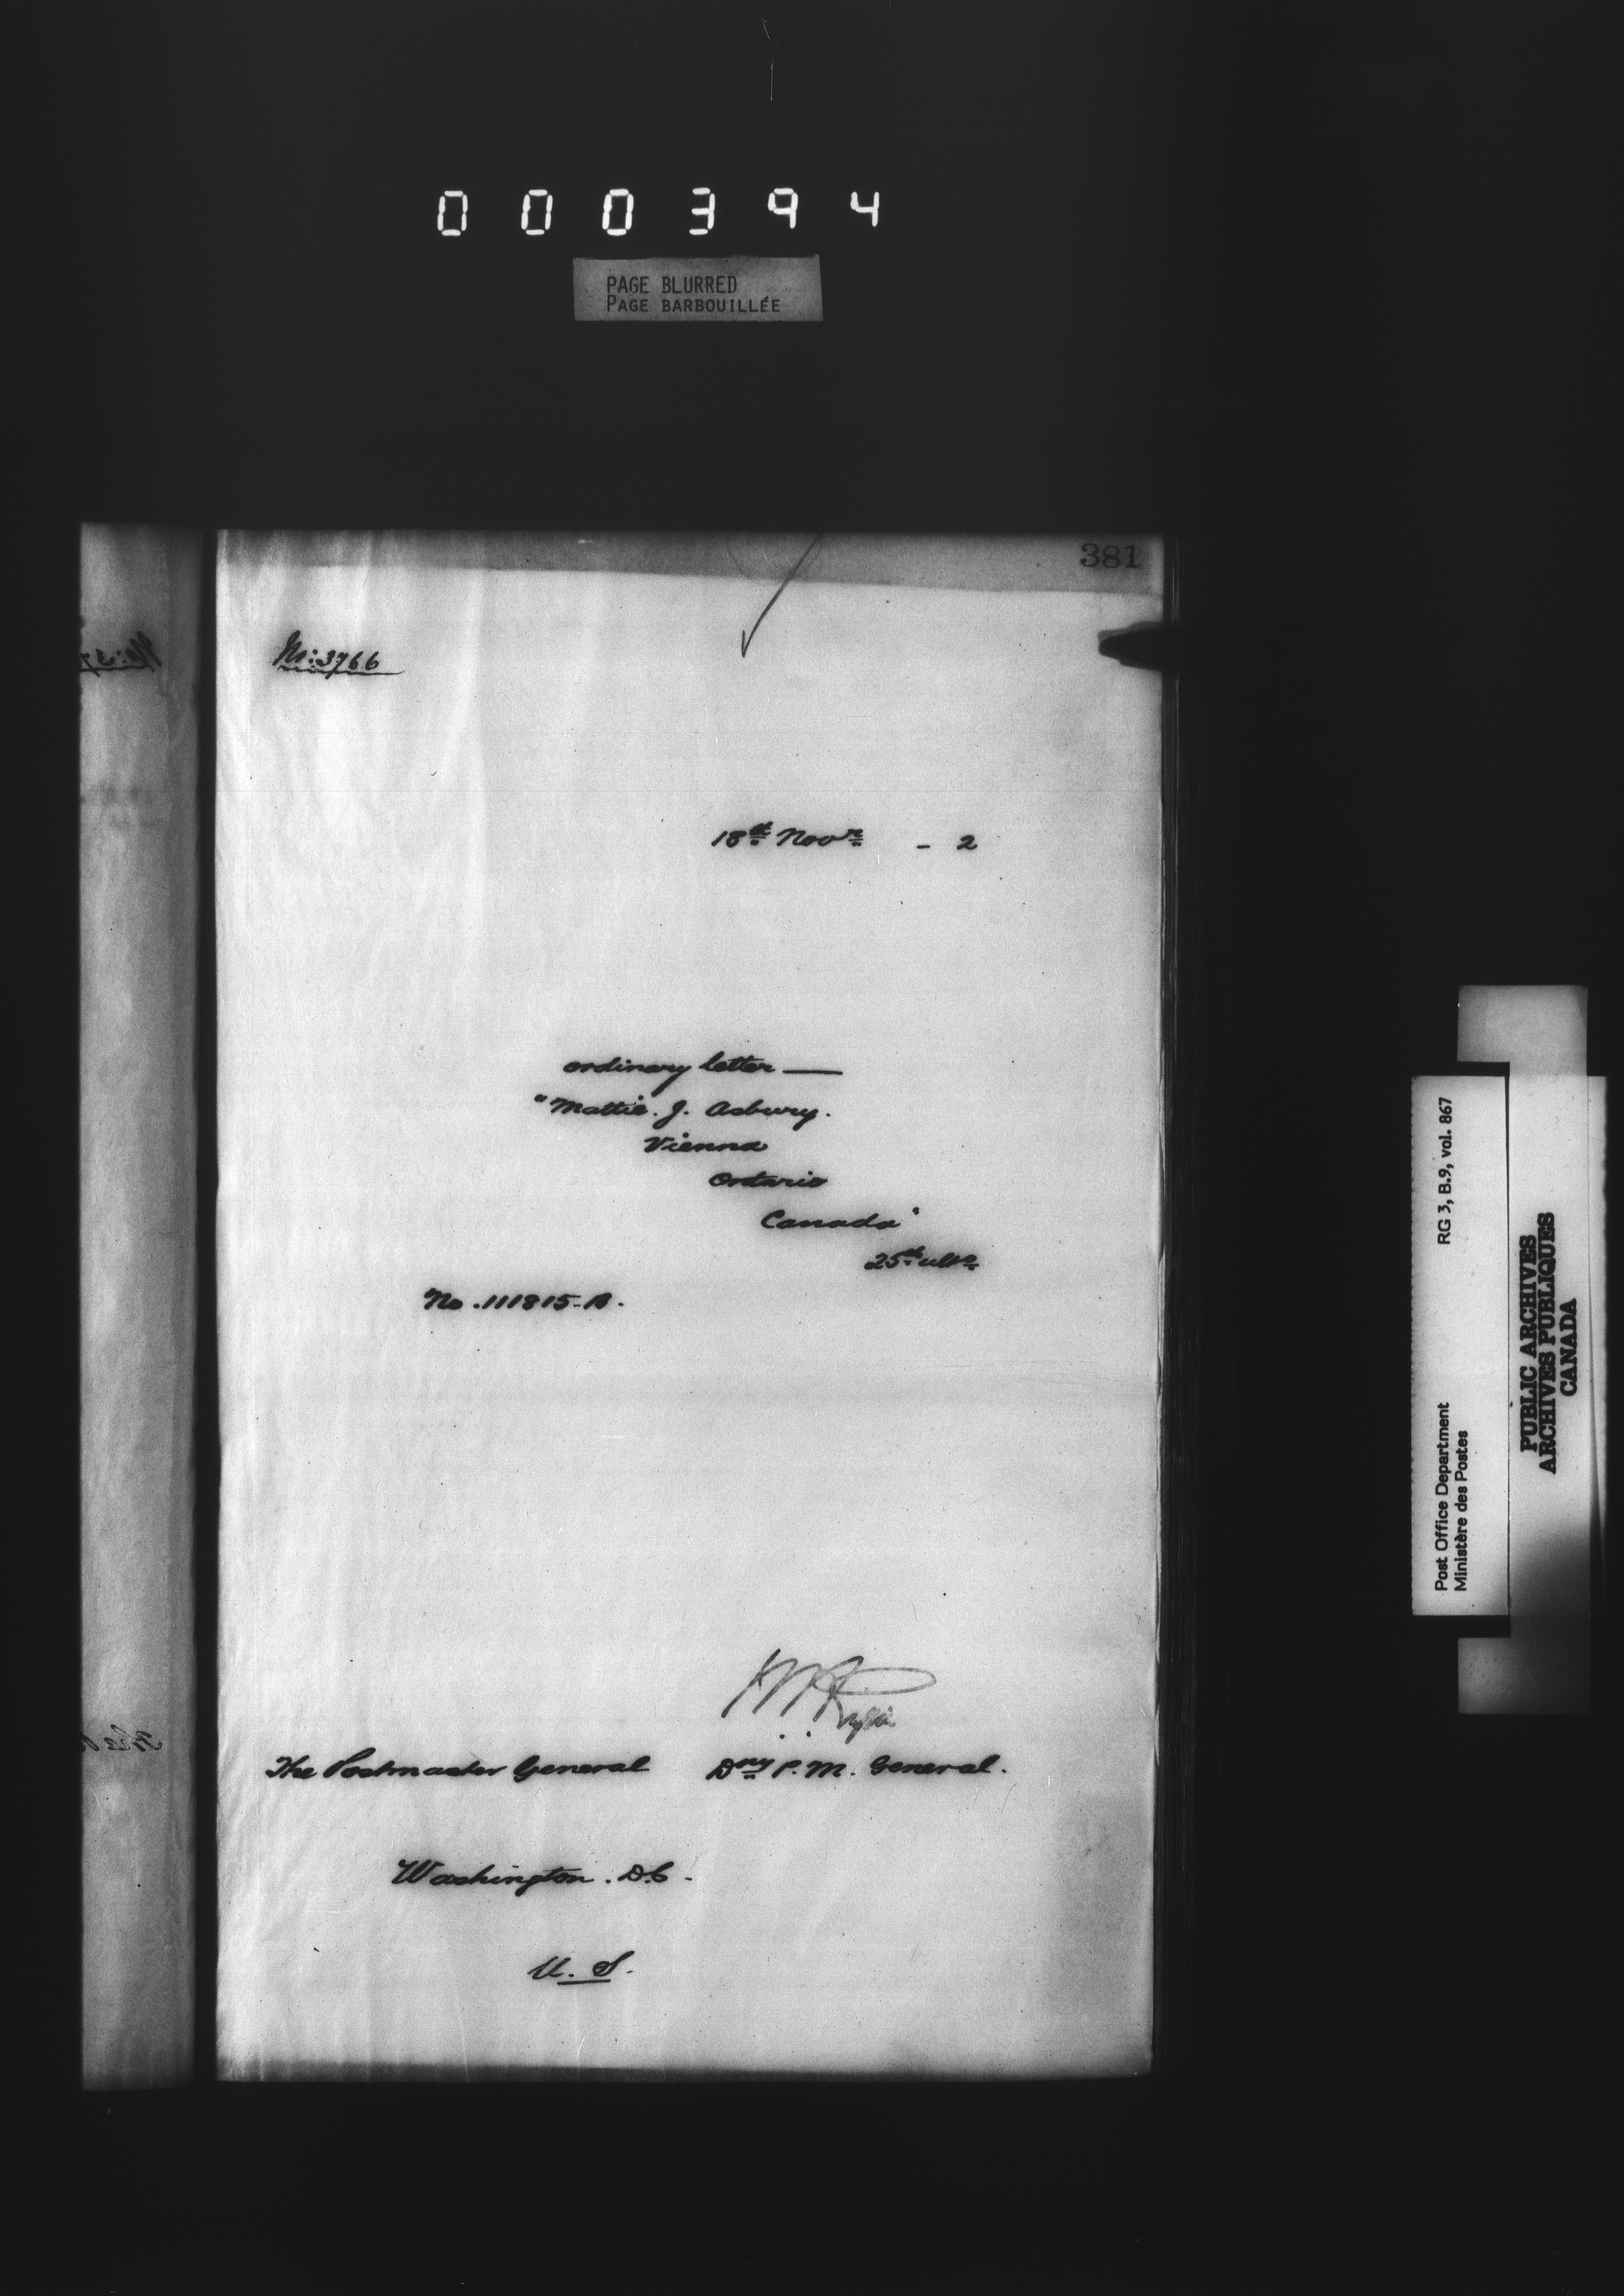 000394
PAGE BLURRED
PAGE BARBOUILLÉE
381
No: 3766
18th Novr - 2
ordinary letter —
"Mattie. J. Asbury.
Vienna
Ontario
Canada"
25th ulto.
No. 111815-B.
The Postmaster General Dny P. M. General.
Washington. D.C.
U. S.
Post Office Department RG 3, B.9, vol. 867
Ministère des Postes
PUBLIC ARCHIVES
ARCHIVES PUBLIQUES
CANADA